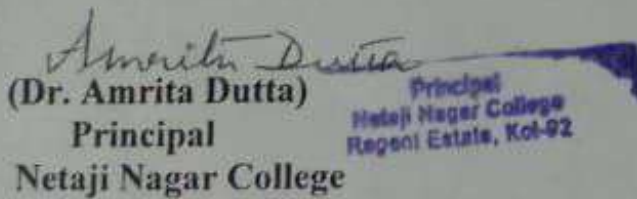 Amrita Dutta
(Dr. Amrita Dutta)
Principal
Netaji Nagar College
Principal
Netaji Nagar College
Regent Estate, Kol-92